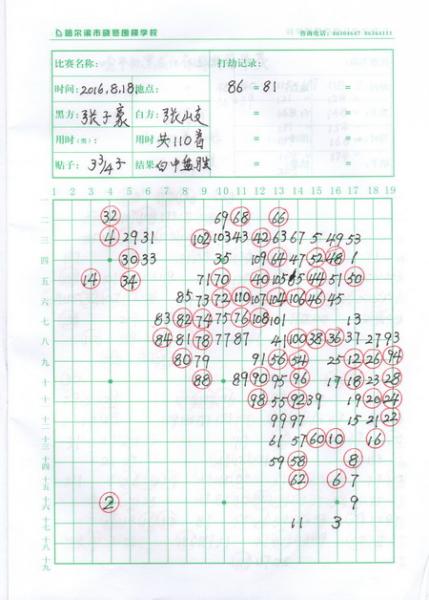 咨询电话: 86304647 86364111
比赛名称: 打劫记录:
时间: 2016.8.18. 地点: 86 = 81 =
黑方: 张子豪 白方: 张山支 = =
用时(黑): 用时 共110着 = =
贴子: 3 3/4子 结果: 白中盘胜 = =
1 2 3 4 5 6 7 8 9 10 11 12 13 14 15 16 17 18 19
一
二 32 69 68 66
三 4 29 31 102 103 43 42 63 67 5 49 53
四 30 33 35 109 64 47 52 48 1
五 14 34 71 70 40 105 44 51 50
六 85 73 72 110 107 104 106 46 45
七 83 82 74 75 76 108 101 13
八 84 81 78 77 87 41 100 38 36 37 27 93
九 80 79 91 56 54 25 12 26 94
十 88 89 90 95 96 17 18 23 28
十一 98 55 92 39 19 20 24
十二 99 97 15 21 22
十三 61 57 60 10 16
十四 59 58 8
十五 62 6 7
十六 2 9
十七 11 3
十八
十九